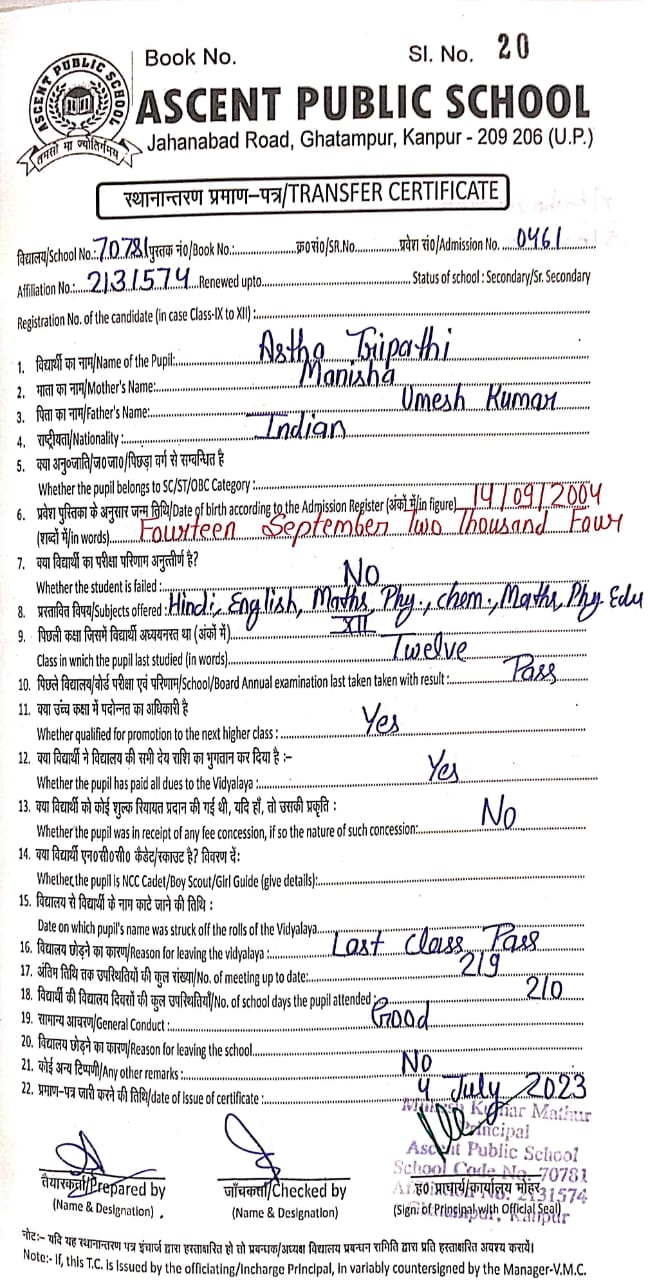 Book No. Sl. No. 20
ASCENT PUBLIC SCHOOL
तमसो मा ज्योतिर्गमय
ASCENT PUBLIC SCHOOL
Jahanabad Road, Ghatampur, Kanpur - 209 206 (U.P.)
स्थानान्तरण प्रमाण–पत्र/TRANSFER CERTIFICATE
विद्यालय/School No.: 70781 पुस्तक नं०/Book No.: क्र०सं०/SR.No. प्रवेश सं०/Admission No. 0461
Affiliation No.: 2131574 Renewed upto Status of school : Secondary/Sr. Secondary
Registration No. of the candidate (in case Class-IX to XII) :
1. विद्यार्थी का नाम/Name of the Pupil: Astha Tripathi
2. माता का नाम/Mother's Name: Manisha
3. पिता का नाम/Father's Name: Umesh Kumar
4. राष्ट्रीयता/Nationality : Indian
5. क्या अनु०जाति/ज०जा०/पिछड़ा वर्ग से सम्बन्धित है
Whether the pupil belongs to SC/ST/OBC Category :
6. प्रवेश पुस्तिका के अनुसार जन्म तिथि/Date of birth according to the Admission Register (अंकों में/in figure) 14/09/2004
(शब्दों में/in words) Fourteen September Two Thousand Four
7. क्या विद्यार्थी का परीक्षा परिणाम अनुत्तीर्ण है?
Whether the student is failed : No
8. प्रस्तावित विषय/Subjects offered : Hindi, English, Maths, Phy., chem., Maths, Phy. Edu
9. पिछली कक्षा जिसमें विद्यार्थी अध्ययनरत था (अंकों में) XII
Class in wnich the pupil last studied (in words) Twelve
10. पिछले विद्यालय/बोर्ड परीक्षा एवं परिणाम/School/Board Annual examination last taken taken with result : Pass
11. क्या उच्च कक्षा में पदोन्नत का अधिकारी है
Whether qualified for promotion to the next higher class : Yes
12. क्या विद्यार्थी ने विद्यालय की सभी देय राशि का भुगतान कर दिया है :–
Whether the pupil has paid all dues to the Vidyalaya : Yes
13. क्या विद्यार्थी को कोई शुल्क रियायत प्रदान की गई थी, यदि हाँ, तो उसकी प्रकृति :
Whether the pupil was in receipt of any fee concession, if so the nature of such concession: No
14. क्या विद्यार्थी एन०सी०सी० कैडेट/स्काउट है? विवरण दें:
Whether, the pupil is NCC Cadet/Boy Scout/Girl Guide (give details):
15. विद्यालय से विद्यार्थी के नाम काटे जाने की तिथि :
Date on which pupil's name was struck off the rolls of the Vidyalaya
16. विद्यालय छोड़ने का कारण/Reason for leaving the vidyalaya : Last Class Pass
17. अंतिम तिथि तक उपस्थितियों की कुल संख्या/No. of meeting up to date: 219
18. विद्यार्थी की विद्यालय दिवसों की कुल उपस्थितियाँ/No. of school days the pupil attended : 210
19. सामान्य आचरण/General Conduct : Good
20. विद्यालय छोड़ने का कारण/Reason for leaving the school
21. कोई अन्य टिप्पणी/Any other remarks : No
22. प्रमाण–पत्र जारी करने की तिथि/date of Issue of certificate : 4 July 2023
Mukesh Kumar Mathur
Principal
Ascent Public School
School Code No. 70781
Affiliation No. 2131574
Ghatampur, Kanpur
तैयारकर्त्ता/Prepared by जाँचकर्त्ता/Checked by ह० प्राचार्य/कार्यालय मोहर
(Name & Designation) . (Name & Designation) (Sign. of Principal with Official Seal)
नोट:– यदि यह स्थानान्तरण पत्र इंचार्ज द्वारा हस्ताक्षरित हो तो प्रबन्धक/अध्यक्ष विद्यालय प्रबन्धन समिति द्वारा प्रति हस्ताक्षरित अवश्य करायें।
Note:- If, this T.C. is issued by the officiating/Incharge Principal, in variably countersigned by the Manager-V.M.C.